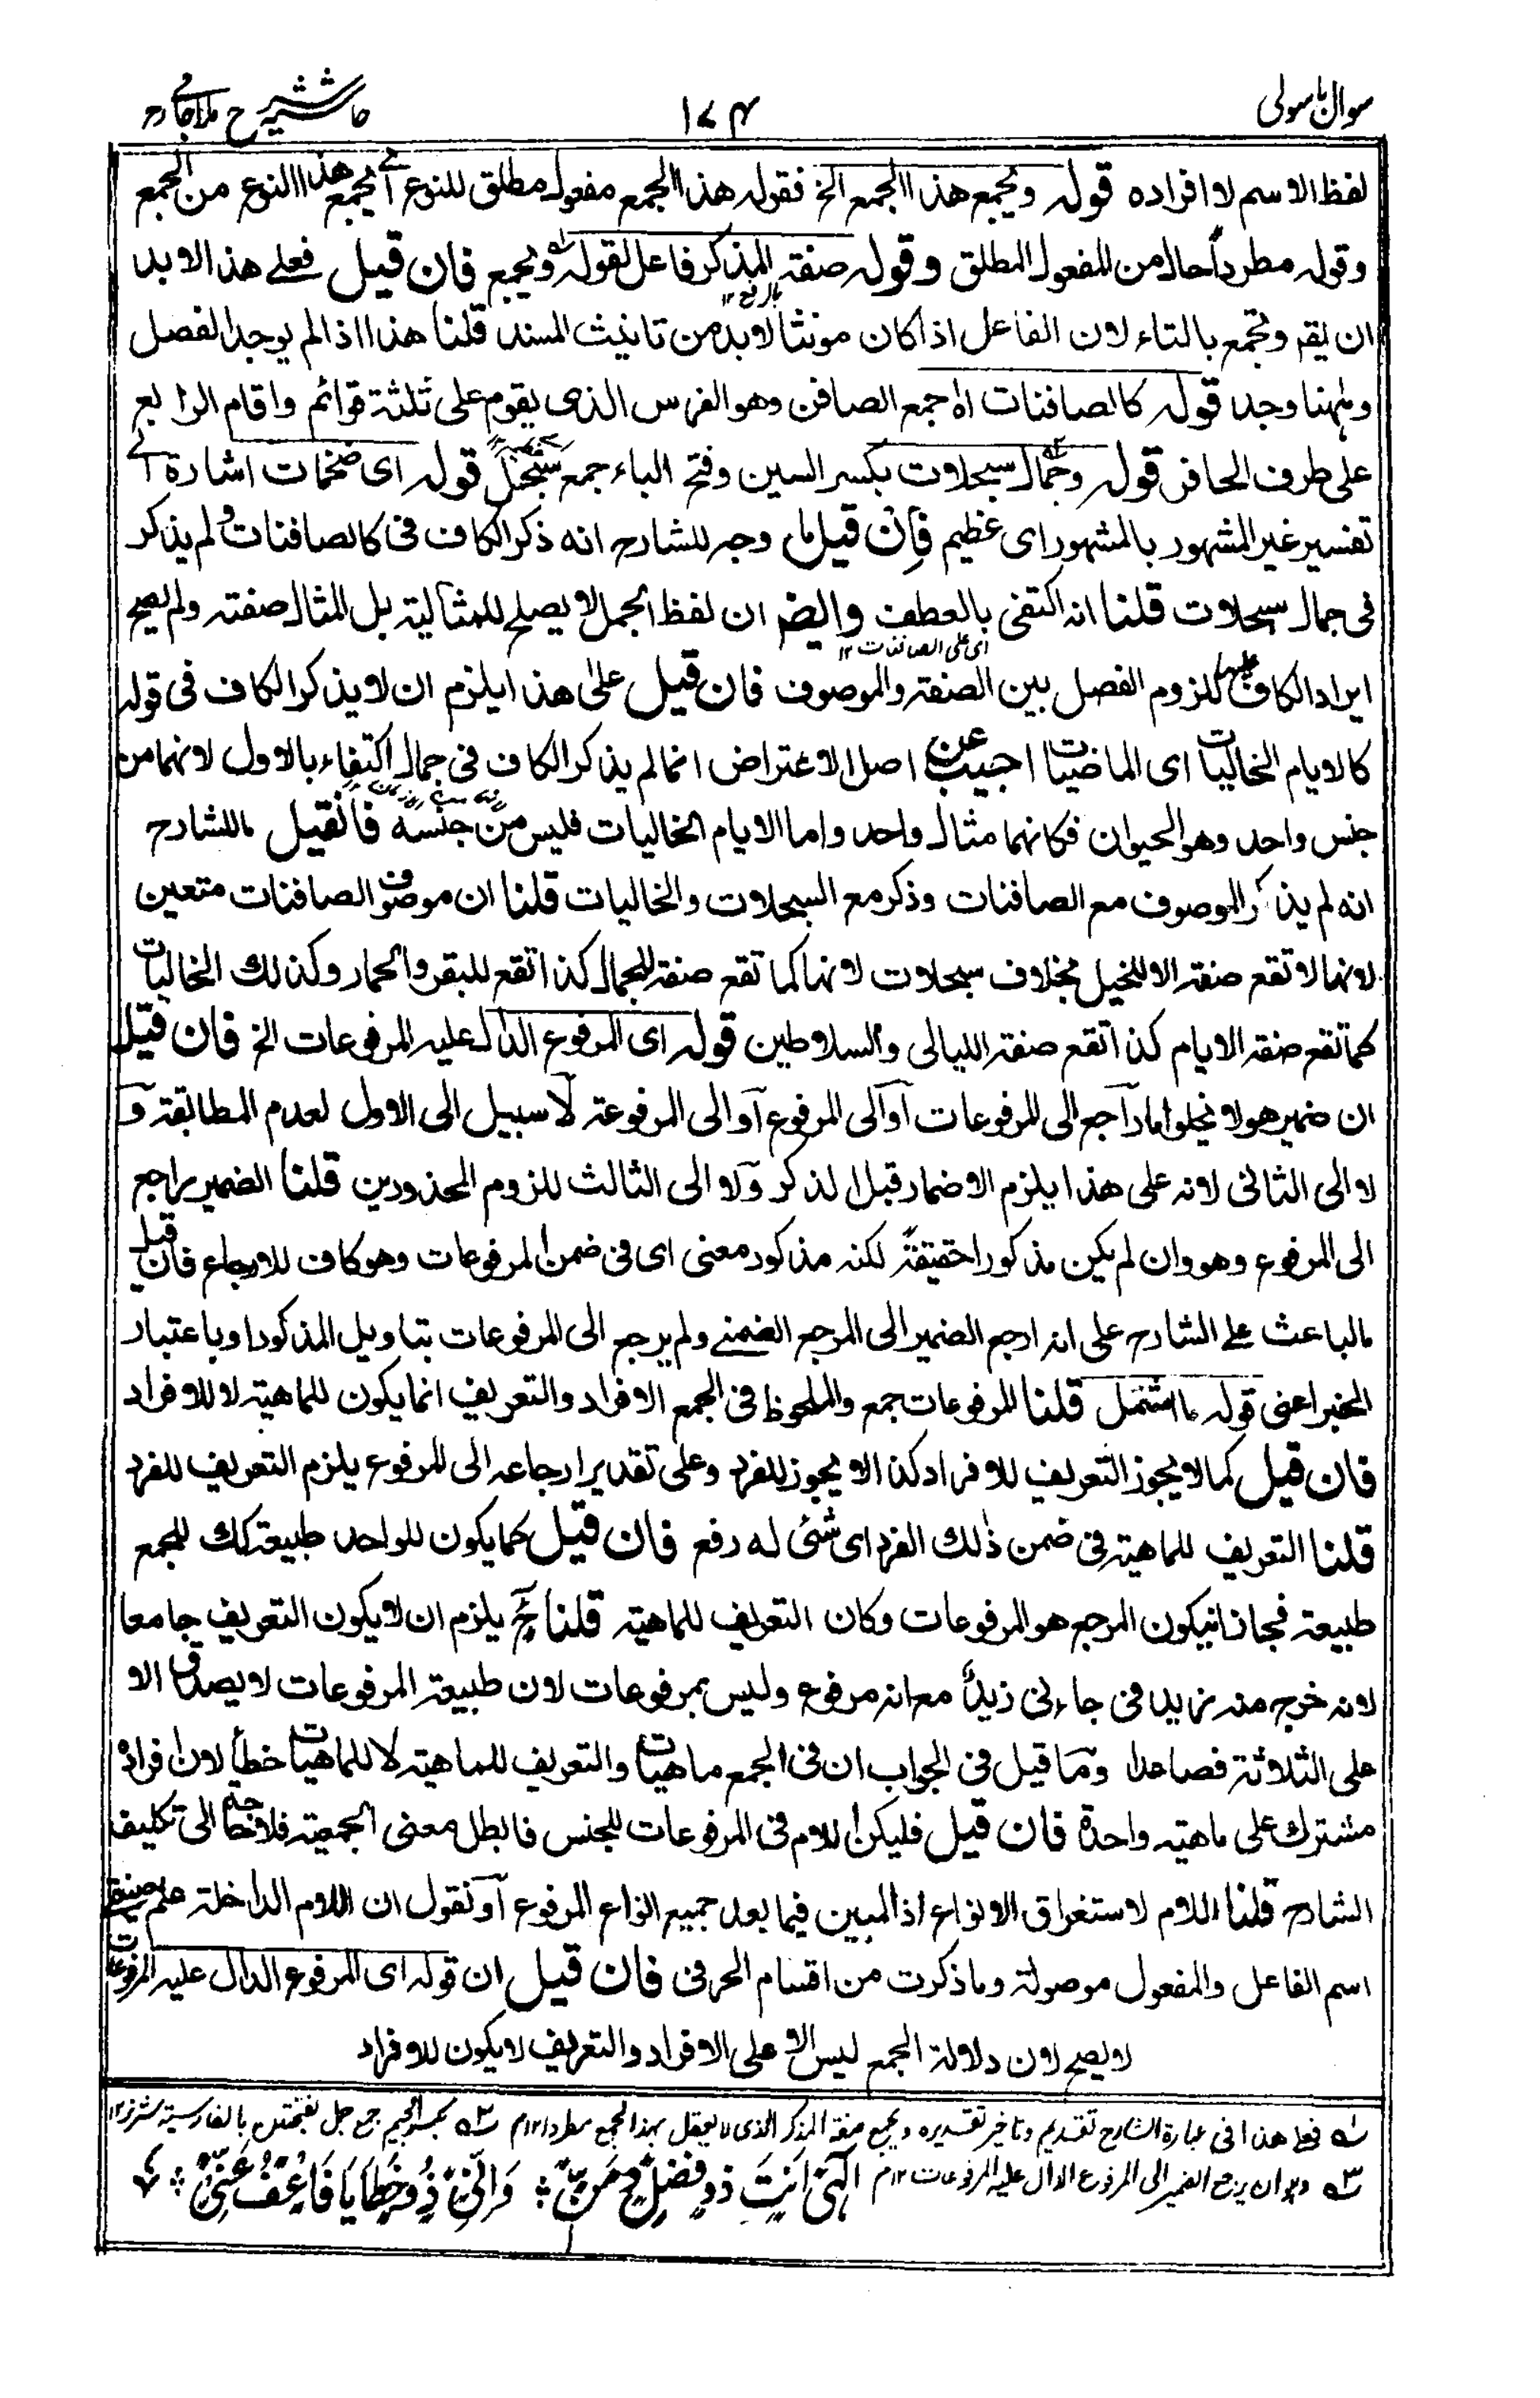 سوال باسولی ۱۷۴ حاشیه شرح ملا جامی رح
لفظ الاسم لا افراده قوله ويجمع هذا الجمع الخ فقوله هذا الجمع مفعول مطلق للنوع اى يجمع هذا النوع من الجمع
وقوله مطردا حال من المفعول المطلق وقوله صفة المذكر فاعل لقوله ويجمع فان قيل فعلى هذا لابد
بالرفع ١٢
ان يقم وتجمع بالتاء لان الفاعل اذا كان مونثا لابد من تانيث المسند قلنا هذا اذا لم يوجد الفصل
وههنا وجد قوله كالصافنات اه جمع الصافن وهو الفرس الذى يقوم على ثلثة قوائم واقام الرابع
على طرف الحافر قوله وجمال سبحلات بكسر السين وفتح الباء جمع سبحل قوله اى ضخمات اشارة الى
تفسير غير المشهور بالمشهور اى عظيم فان قيل ما وجه للشارح انه ذكر الكاف فى كالصافنات ولم يذكر
فى جمال سبحلات قلنا انه اكتفى بالعطف وايض ان لفظ الجمل لا يصلح للمثالية بل المثال صفته ولم يصح
اى على الصافنات ١٢
ايراد الكاف عليها للزوم الفصل بين الصفة والموصوف فان قيل على هذا يلزم ان لا يذكر الكاف فى قوله
كالايام الخاليات اى الماضيات اجيب عن اصل الاعتراض انما لم يذكر الكاف فى جمال اكتفاء بالاول لانهما من
جنس واحد وهو الحيوان فكانهما مثال واحد واما الايام الخاليات فليس من جنسه فانقيل ما للشارح
انه لم يذكر الموصوف مع الصافنات وذكر مع السبحلات والخاليات قلنا ان موصوف الصافنات متعين
لانها لا تقع صفة الا للخيل بخلاف سبحلات لانها كما تقع صفة للجمال كذا تقع للبقر والحمار وكذلك الخاليات
كما تقع صفة الايام كذا تقع صفة الليالى والسلاطين قوله اى المرفوع الدال عليه المرفوعات الخ فان قيل
ان ضمير هو لا يخلو اما راجع الى المرفوعات او الى المرفوع او الى المرفوعة لا سبيل الى الاول لعدم المطابقة و
لا الى الثانى لانه على هذا يلزم الاضمار قبل الذكر ولا الى الثالث للزوم المحذورين قلنا الضمير راجع
الى المرفوع وهو وان لم يكن مذكورا حقيقة لكنه مذكور معنى اى فى ضمن المرفوعات وهو كاف للارجاع فان قيل
ما الباعث على الشارح على انه ارجع الضمير الى المرجع الضمنى ولم يرجع الى المرفوعات بتاويل المذكور او باعتبار
الخبر اعنى قوله ما اشتمل قلنا المرفوعات جمع والملحوظ فى الجمع الافراد والتعريف انما يكون للماهية لا للافراد
فان قيل كما لا يجوز التعريف للافراد كذا لا يجوز للفرد وعلى تقدير ارجاعه الى المرفوع يلزم التعريف للفرد
قلنا التعريف للماهية فى ضمن ذلك الفرد اى شئ له رفع فان قيل كما يكون للواحد طبيعة كك للجمع
طبيعة فجاز ان يكون المرجع هو المرفوعات وكان التعريف للماهية قلنا ح يلزم ان لا يكون التعريف جامعا
لانه خرج منه زيد فى جاءنى زيد مع انه مرفوع وليس بمرفوعات لان طبيعة المرفوعات لا يصدق الا
على الثلاثة فصاعدا وما قيل فى الجواب ان فى الجمع ماهيات والتعريف للماهية لا للماهيات خطأ لان افراده
مشترك على ماهية واحدة فان قيل فليكن اللام فى المرفوعات للجنس فابطل معنى الجمعية فلا حاجة الى تكليف
الشارح قلنا اللام لاستغراق الانواع اذ المبين فيما بعد جميع انواع المرفوع او نقول ان اللام الداخلة على صيغة
اسم الفاعل والمفعول موصولة وما ذكرت من اقسام الحرفى فان قيل ان قوله اى المرفوع الدال عليه المرفوعات
لا يصح لان دلالة الجمع ليس الا على الافراد والتعريف لا يكون للافراد
١ه فعلى هذا فى عبارة الشارح تقديم وتاخير تقديره ويجمع صفة المذكر الذى لا يعقل بهذا الجمع مطردا ١٢م ٢ه بكسر الجيم جمع جمل بفتحتين بالفارسية شتر نر ١٢
٣ه وهو ان يرجع الضمير الى المرفوع الدال عليه المرفوعات ١٢م الٰهى انت ذو فضل ومن ؞ وانى ذو خطايا فاعف عنى ؞